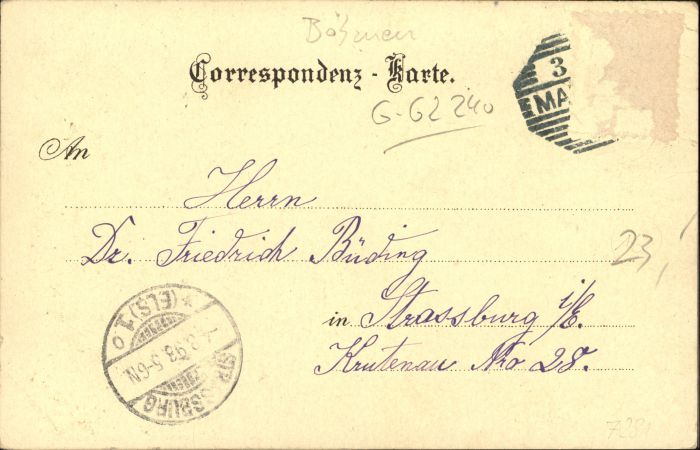 Böhmen
Correspondenz - Karte.
G-G2 240
3
MA
An
Herrn
Dr. Friedrich Büding
23,
in Strassburg i/E.
Krutenau No 28.
STRASSBURG
* (ELS) 1 o
4.3.98.5-6N.